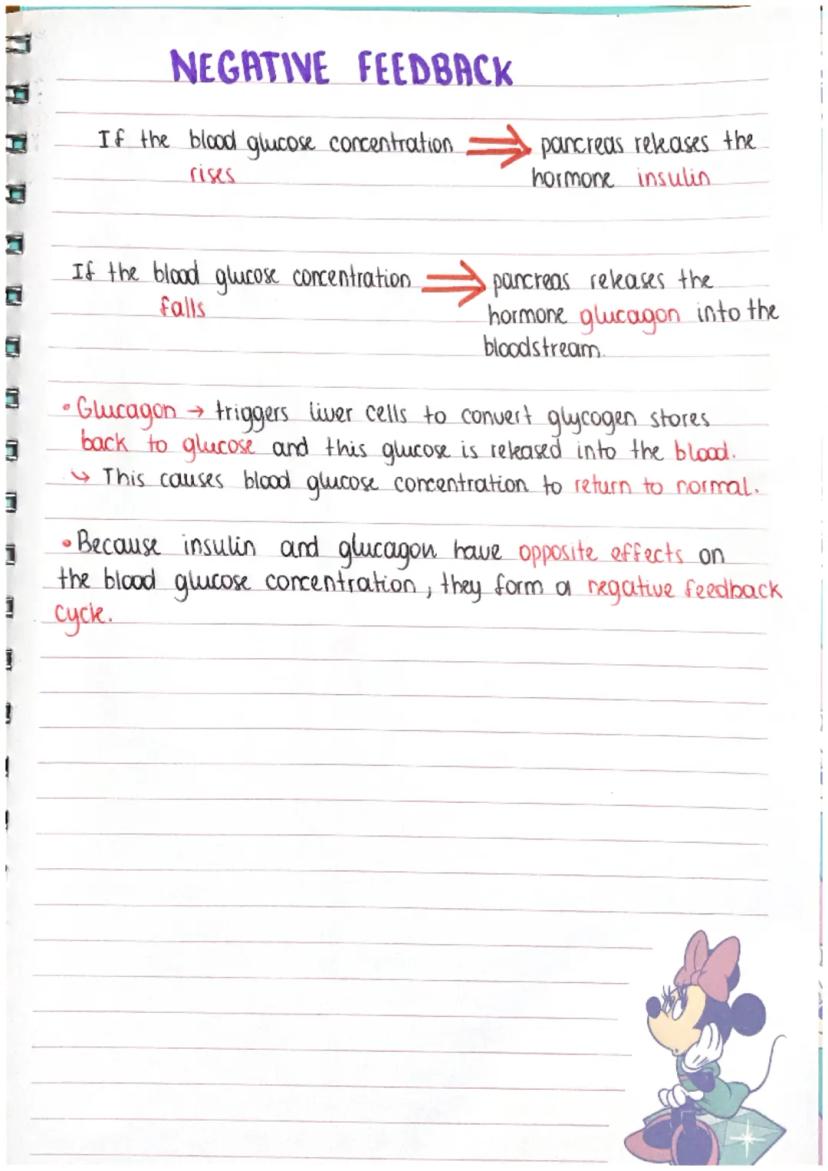 NEGATIVE FEEDBACK
If the blood glucose concentration ⇒ pancreas releases the
rises hormone insulin
If the blood glucose concentration ⇒ pancreas releases the
falls hormone glucagon into the
bloodstream.
• Glucagon → triggers liver cells to convert glycogen stores
back to glucose and this glucose is released into the blood.
↳ This causes blood glucose concentration to return to normal.
• Because insulin and glucagon have opposite effects on
the blood glucose concentration, they form a negative feedback
cycle.